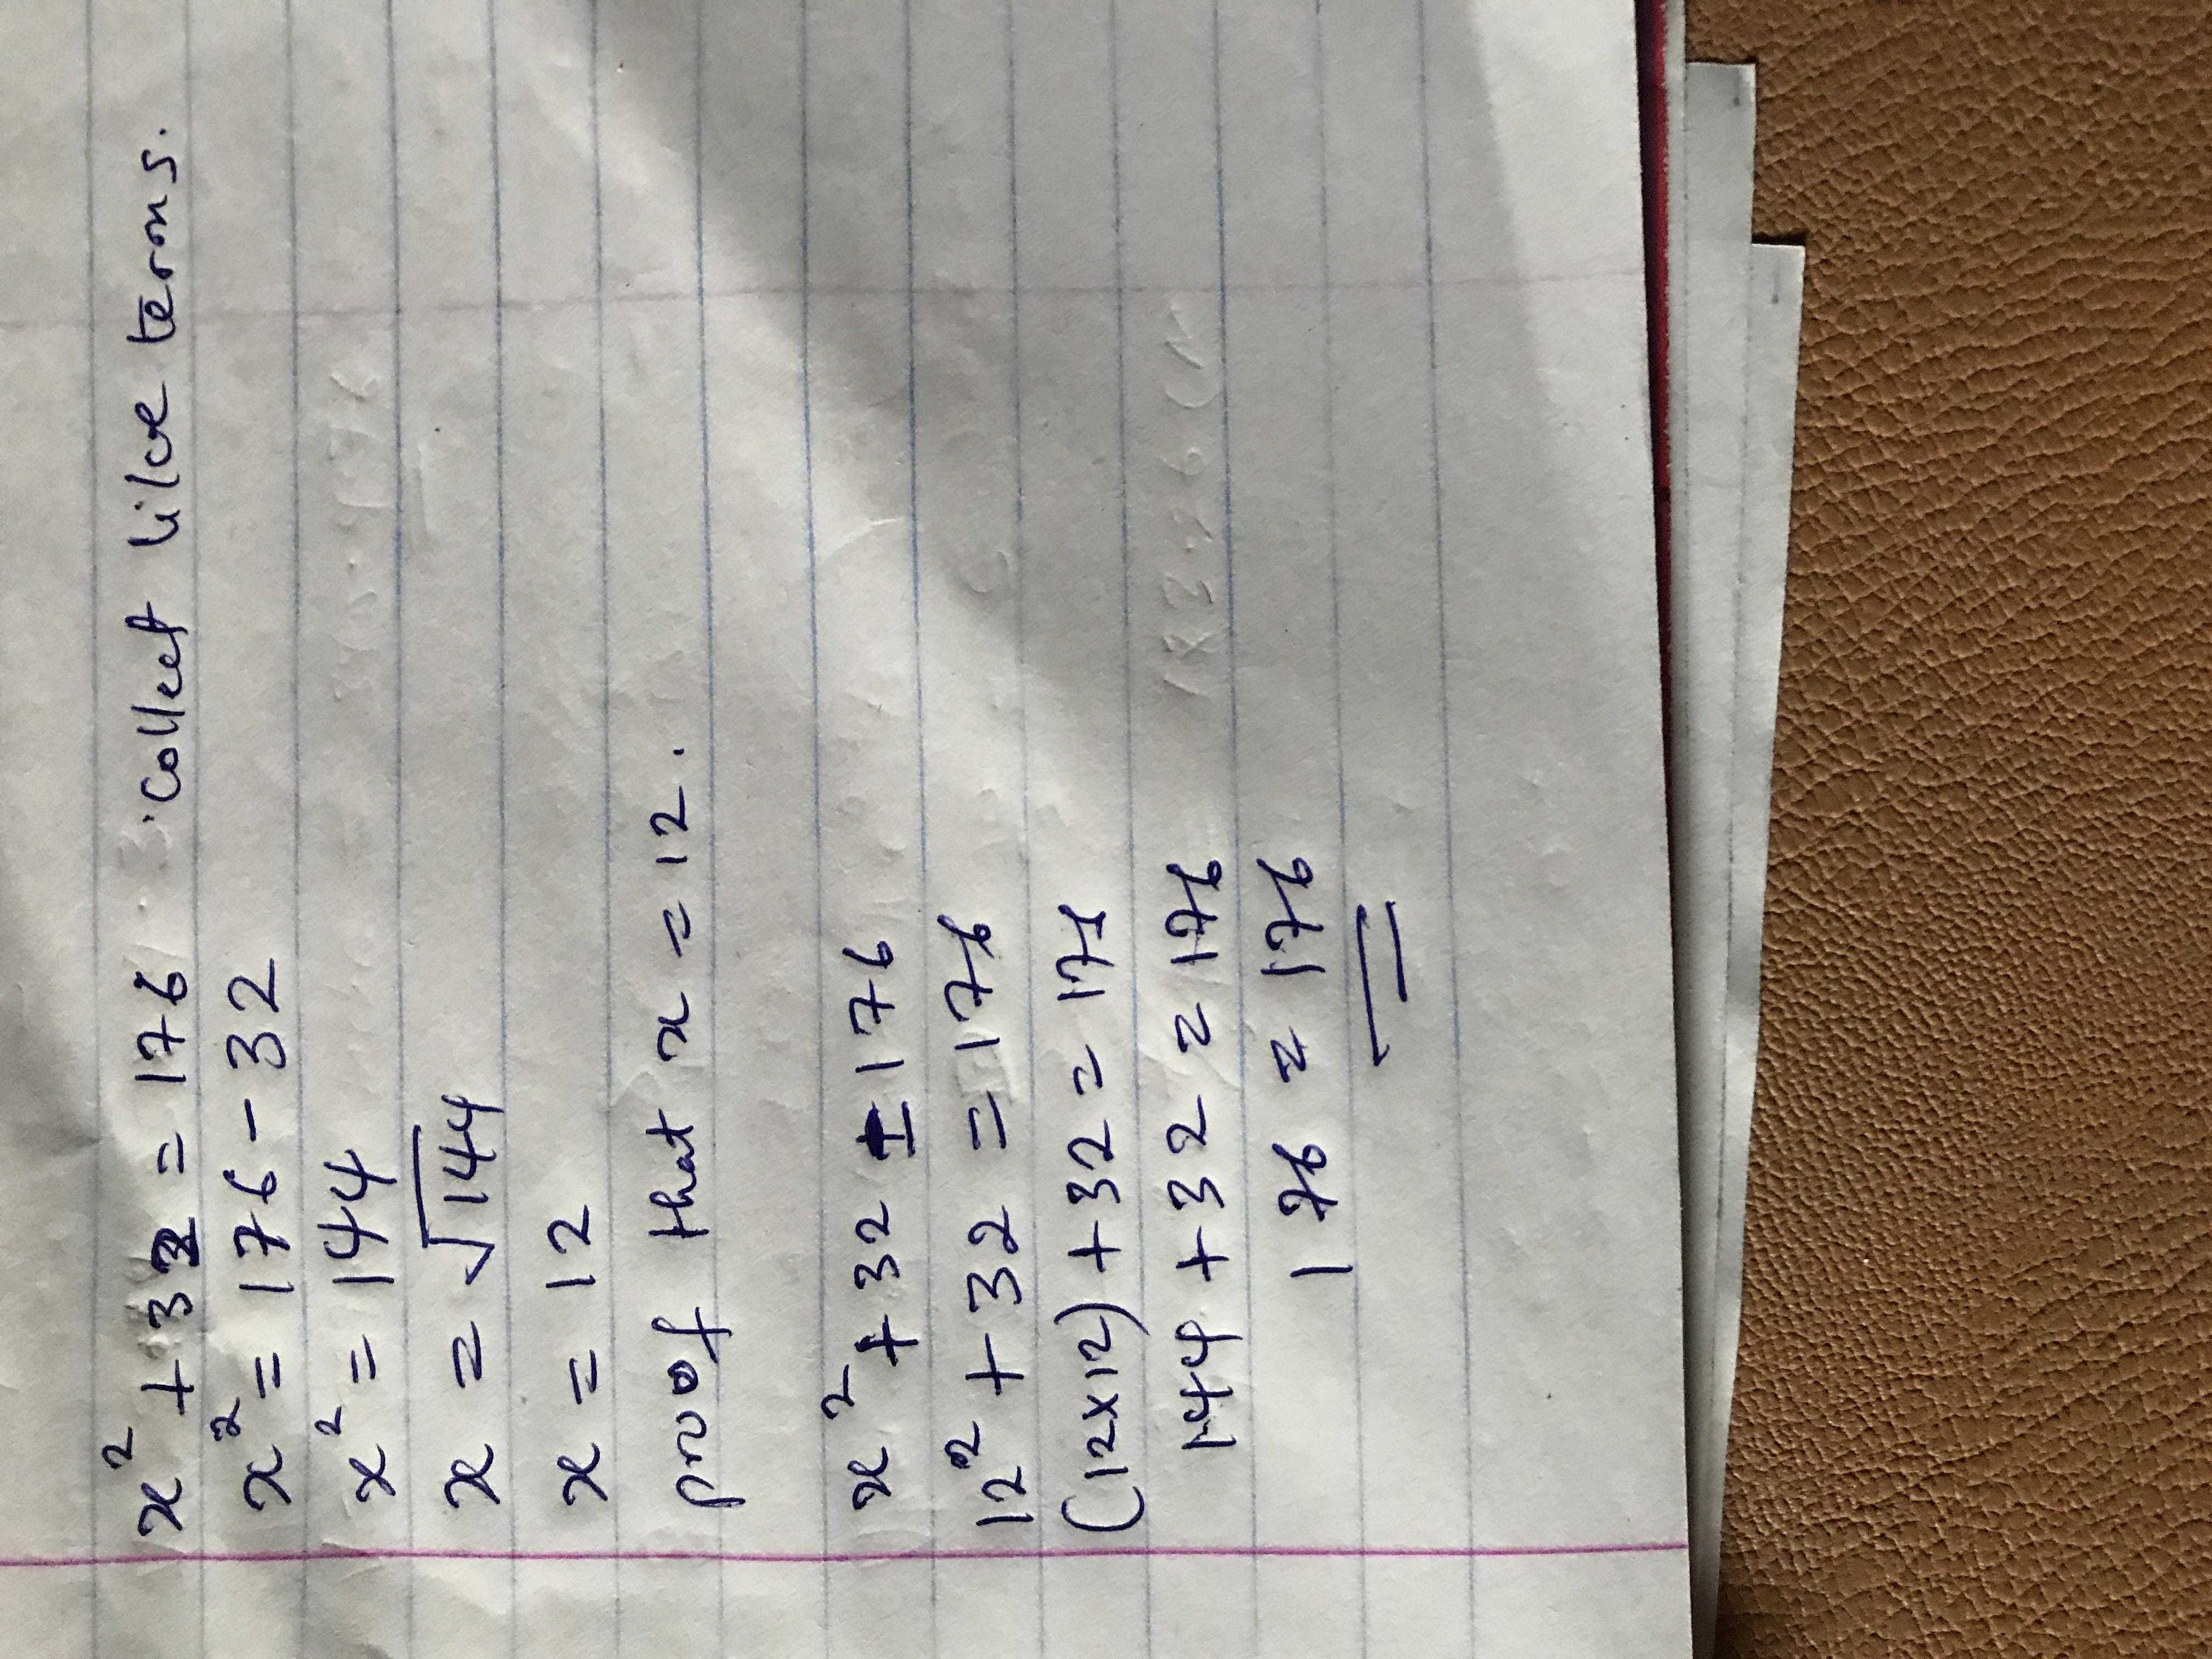 x² + 32 = 176 . collect like terms.
x² = 176 - 32
x² = 144
x = √144
x = 12
proof that x = 12.
x² + 32 = 176
12² + 32 = 176
(12x12) + 32 = 176
144 + 32 = 176
176 = 176